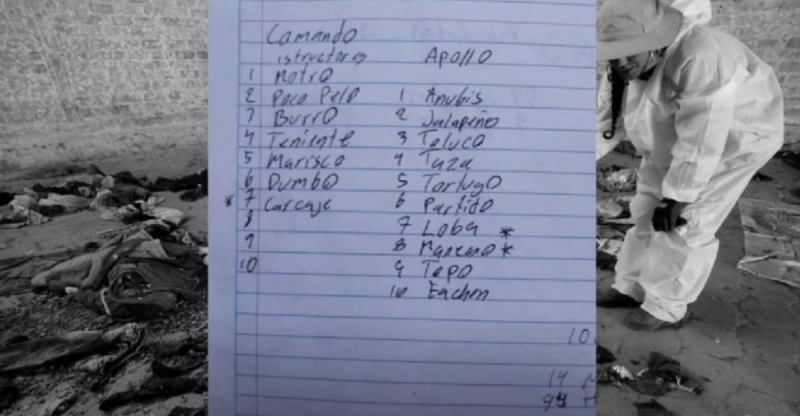 Comando
istructores Apollo
1 Motro
2 Poco Pelo 1 Anubis
7 Burro 2 Jalapeño
4 Teniente 3 Toluco
5 Marisco 4 Taza
6 Dumbo 5 Tortugo
* 7 Carcaje 6 Partido
8 7 Loba *
9 8 Manzano *
10 9 Topo
10 Eachon
10
14